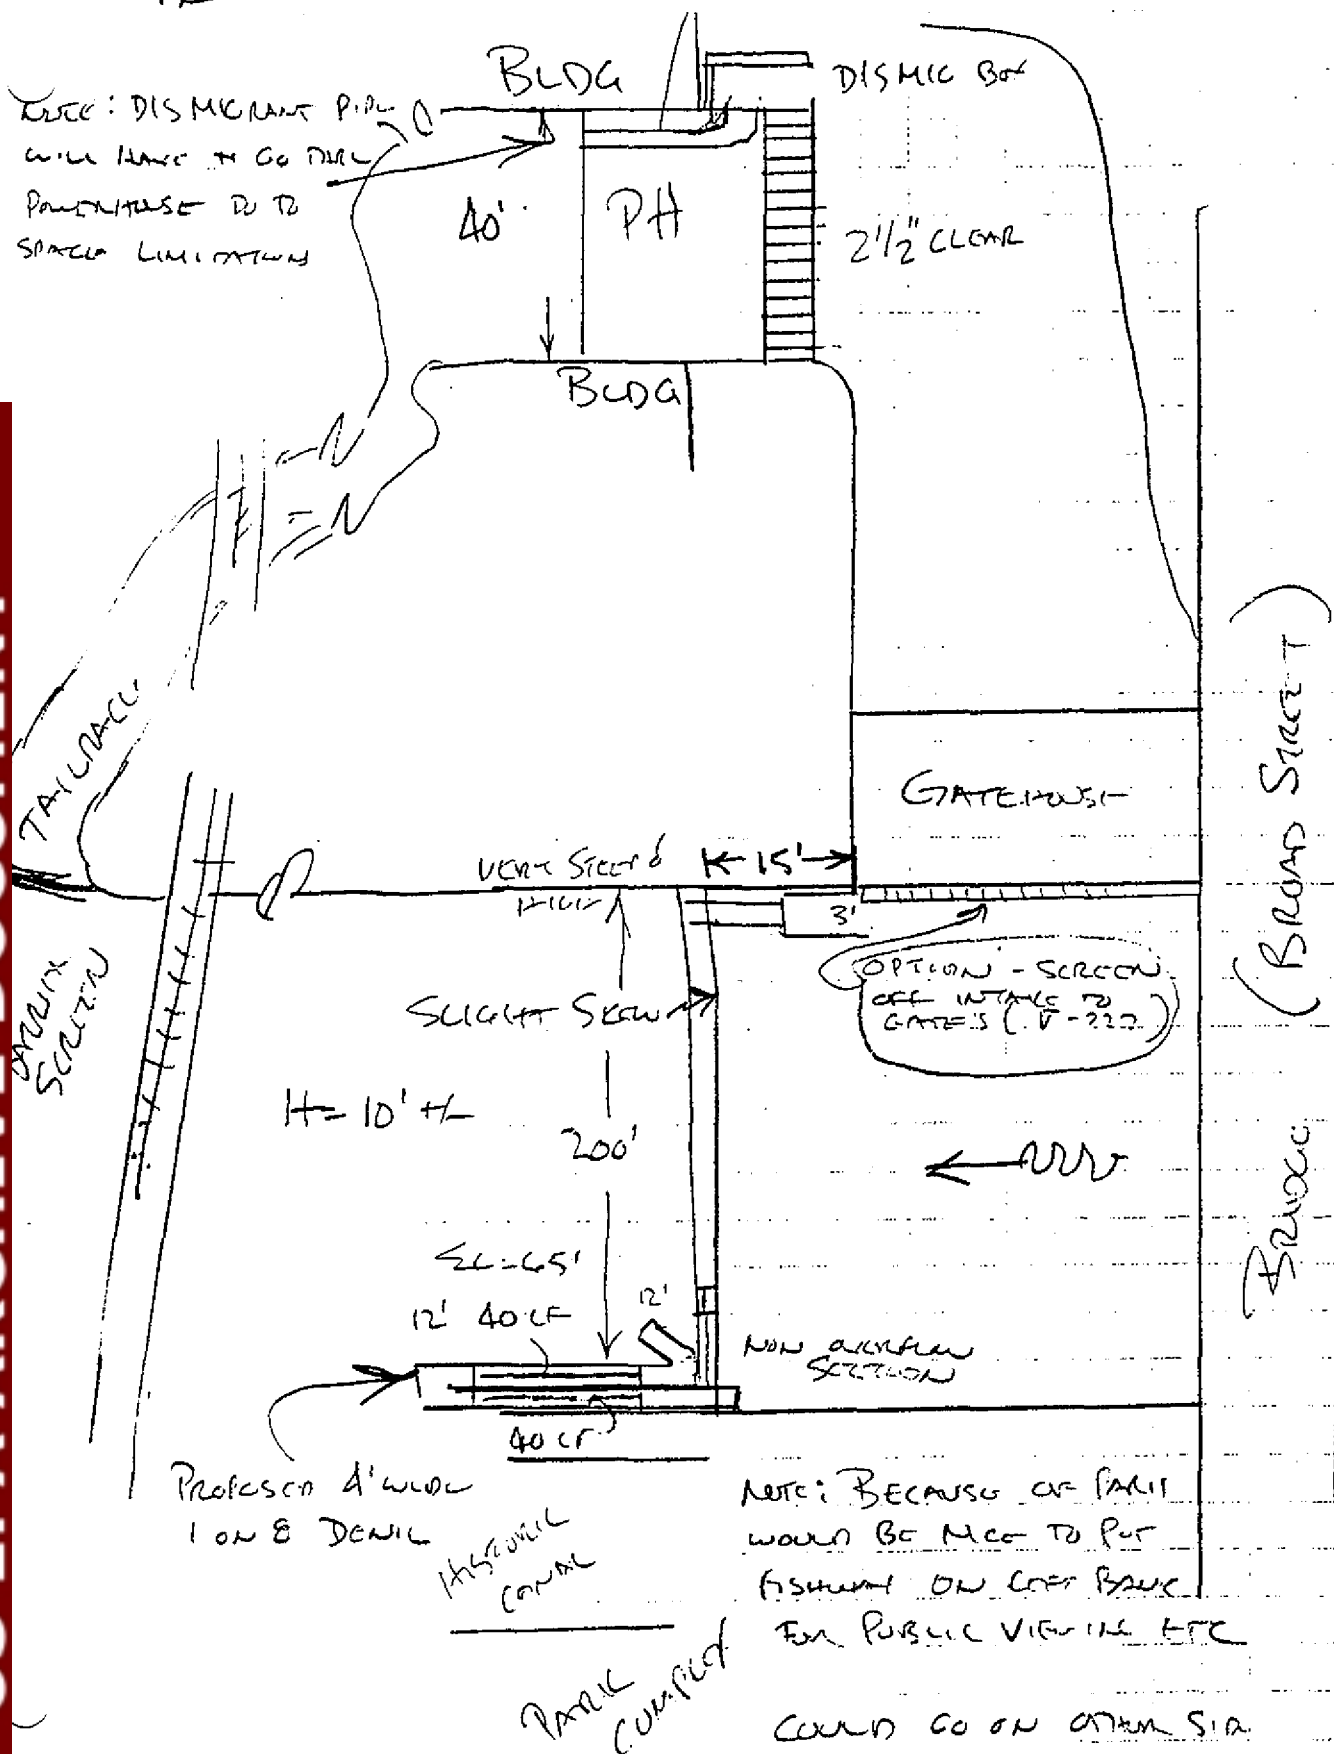 BLDG
DISMIG BOX
NOTE: DISMIGRANT PIPE
WILL HAVE TO GO THRU
POWERHOUSE DU TO
SPACE LIMITATIONS
40'
PH
2 1/2" CLEAR
BLDG
TAILRACE
GATEHOUSE
(BROAD STREET)
BRIDGE
VERT STEEP &
HIGH
15'
3'
OPTION - SCREEN
OFF INTAKE TO
GATE'S (
BARRIER
SCREEN
SLIGHT SKEW
H= 10' +/-
200'
12' 40 CF
12'
NON OVERFLOW
SECTION
40 CF
PROPOSED 4' WIDE
1 ON 8 DENIL
HISTORIC
CANAL
PARK
COMPLEX
NOTE: BECAUSE OF PARK
WOULD BE NICE TO PUT
FISHWAY ON LEFT BANK
FOR PUBLIC VIEWING ETC
COULD GO ON OTHER SIDE